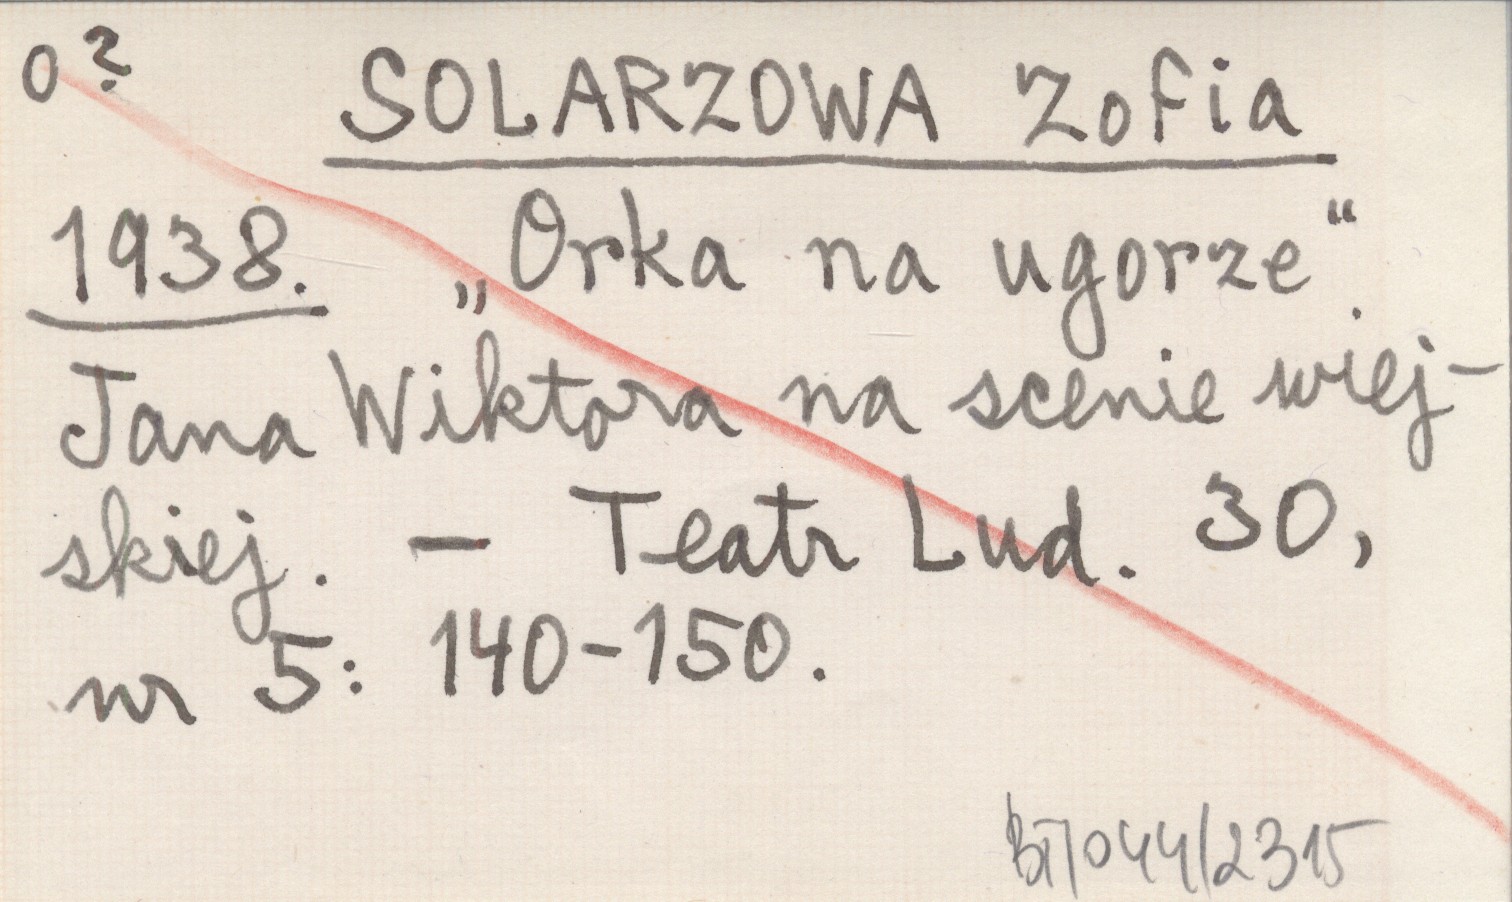 O?
SOLARZOWA Zofia
1938. „Orka na ugorze“
Jana Wiktora na scenie wiej-
skiej. – Teatr Lud. 30,
nr 5: 140-150.
BT/044/2315